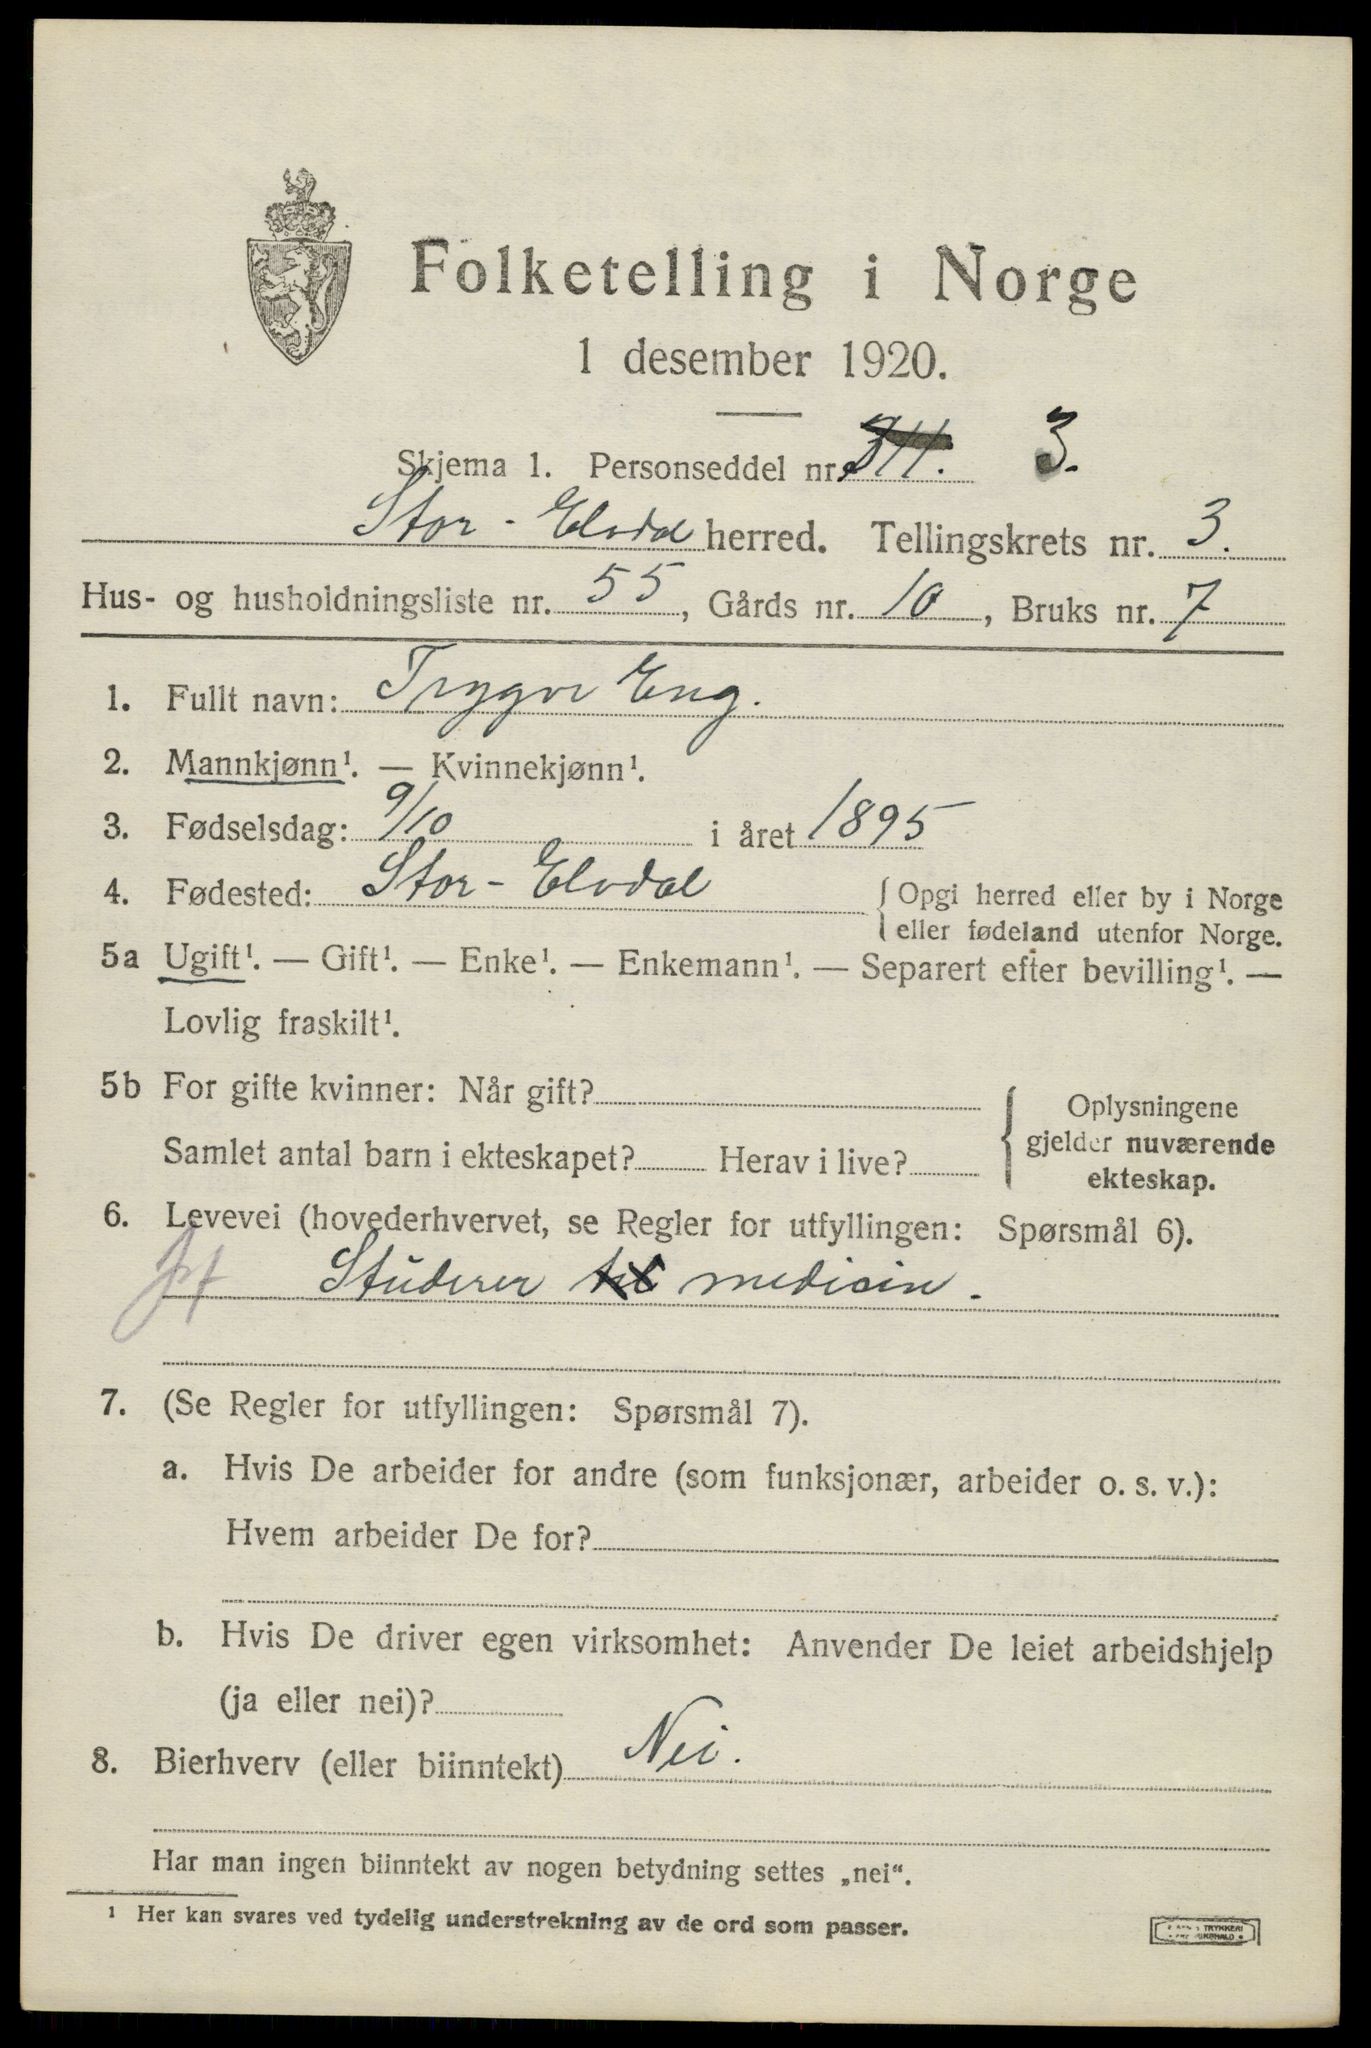 Folketelling i Norge
1 desember 1920.
Skjema 1. Personseddel nr. 311. 3.
Stor-Elvdal herred. Tellingskrets nr. 3.
Hus- og husholdningsliste nr. 55, Gårds nr. 10, Bruks nr. 7
1. Fullt navn: Trygve Eng.
2. Mannkjønn¹. — Kvinnekjønn¹.
3. Fødselsdag: 9/10 i året 1895
4. Fødested: Stor-Elvdal {Opgi herred eller by i Norge
eller fødeland utenfor Norge.
5a Ugift¹. — Gift¹. — Enke¹. — Enkemann¹. — Separert efter bevilling¹. —
Lovlig fraskilt¹.
5b For gifte kvinner: Når gift?
Samlet antal barn i ekteskapet? Herav i live?
Oplysningene
gjelder nuværende
ekteskap.
6. Levevei (hovederhvervet, se Regler for utfyllingen: Spørsmål 6).
Studerer til medicin.
7. (Se Regler for utfyllingen: Spørsmål 7).
a. Hvis De arbeider for andre (som funksjonær, arbeider o. s. v.):
Hvem arbeider De for?
b. Hvis De driver egen virksomhet: Anvender De leiet arbeidshjelp
(ja eller nei)?
8. Bierhverv (eller biinntekt) Nei.
Har man ingen biinntekt av nogen betydning settes „nei“.
¹ Her kan svares ved tydelig understrekning av de ord som passer.
TRYKKERI